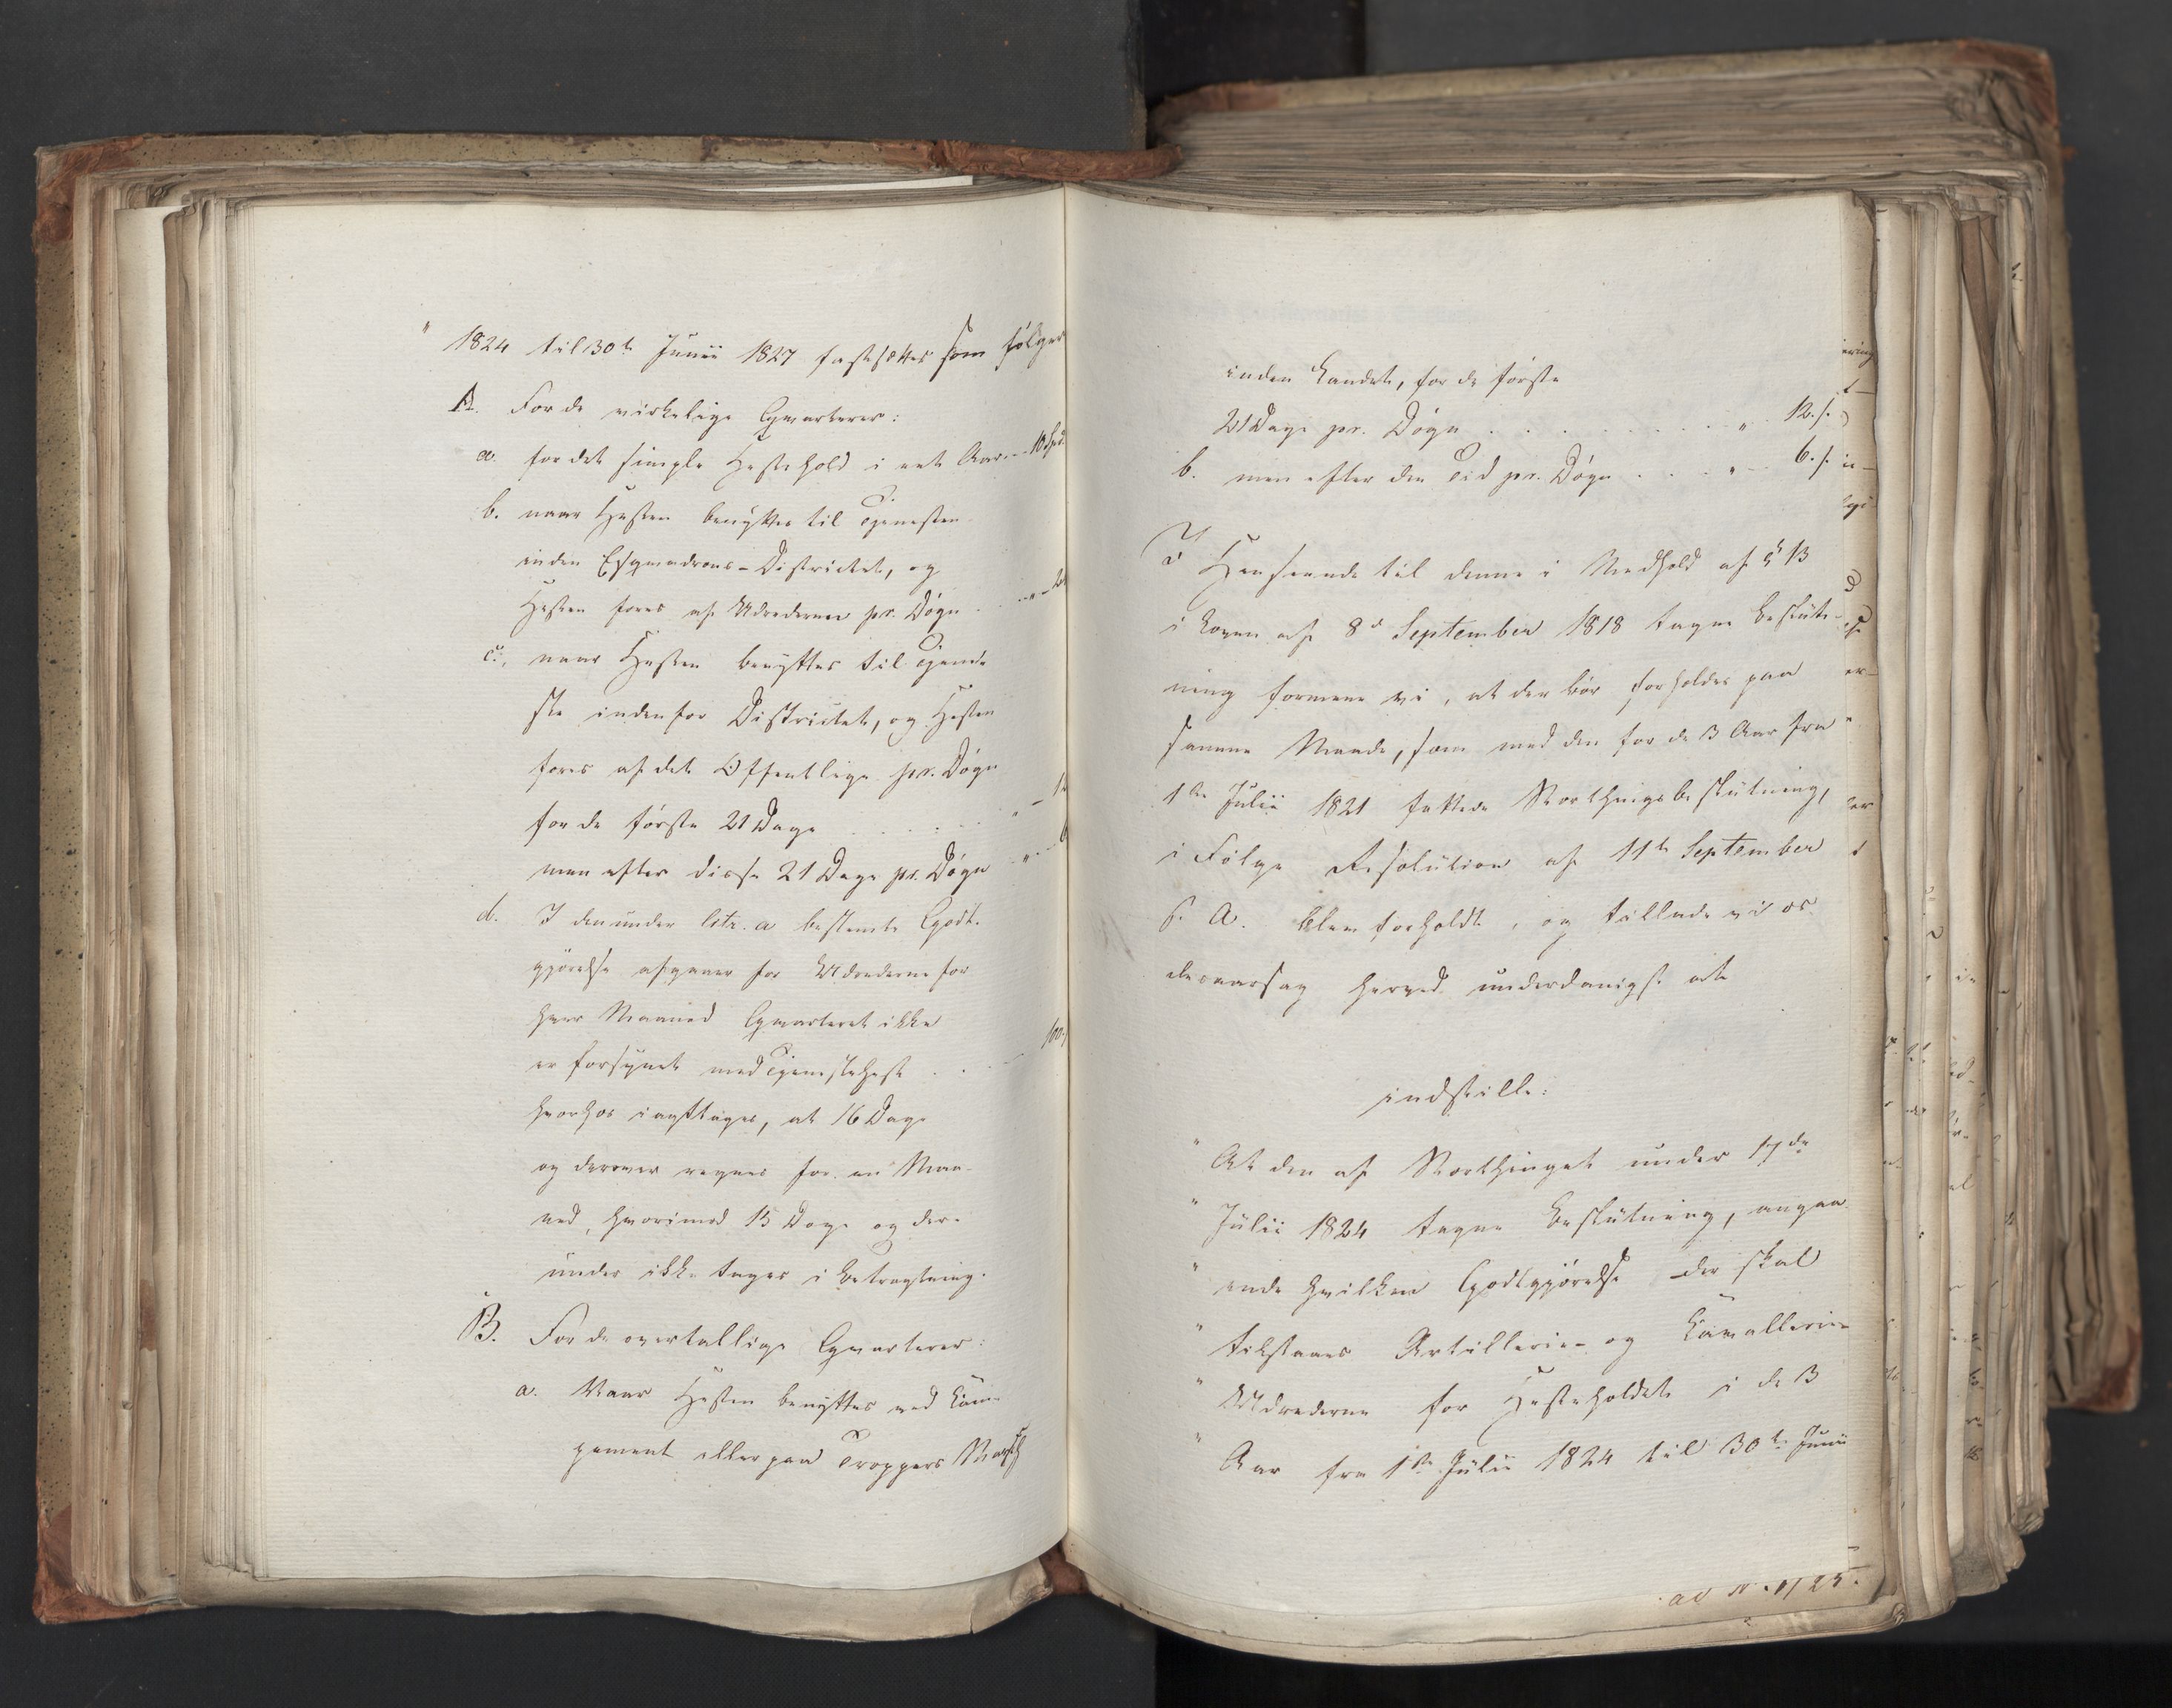 " 1824 til 30te Junii 1827 fastsættes som følger
A. For de virkelige Qvarterer:
a. for det simple Hestehold i eet Aar - 10 Spd.
b. naar Hesten benyttes til Tjenesten
inden Esqvadrons-Districtet, og
Hesten fores af Udrederne pr. Døgn . . . " -
c. naar Hesten benyttes til Tjene-
ste indenfor Districtet, og Hesten
fores af det Offentlige pr. Døgn
for de første 21 Dage . . . . " - 12
men efter disse 21 Dage pr. Døgn " - 6
d. I den under litr. a bestemte Godt-
gjørelse afgaaer for Udrederne for
hver Maaned Qvarteret ikke
er forsynet med Tjenestehest . . . - 100
hvorhos iagttages, at 16 Dage
og derover regnes for en Maa-
ned, hvorimod 15 Dage og der-
under ikke tages i Betragtning.
B. For de overtallige Qvarterer:
a. Naar Hesten benyttes ved Cam-
pement eller paa Troppers Marsch
inden Landet, for de første
21 Dage pr. Døgn . . . . . . . . " 12 s.
b. men efter den Tid pr. Døgn . . . " - 6 s.
I Henseende til denne i Medhold af § 13
i Loven af 8de September 1818 tagne Beslut-
ning formene vi, at der bør forholdes paa
samme Maade, som med den for de 3 Aar fra
1ste Julii 1821 fattede Storthingsbeslutning,
i Følge Resolution af 11te September
s. A. blev forholdt, og tillade vi os
desaarsag herved underdanigst at
indstille:
" At den af Storthinget under 17de
" Julii 1824 tagne Beslutning, angaa-
" ende hvilken Godtgjørelse der skal
" tilstaaes Artillerie- og Cavallerie-
" Udrederne for Hesteholdet i de 3
" Aar fra 1ste Julii 1824 til 30te Junii